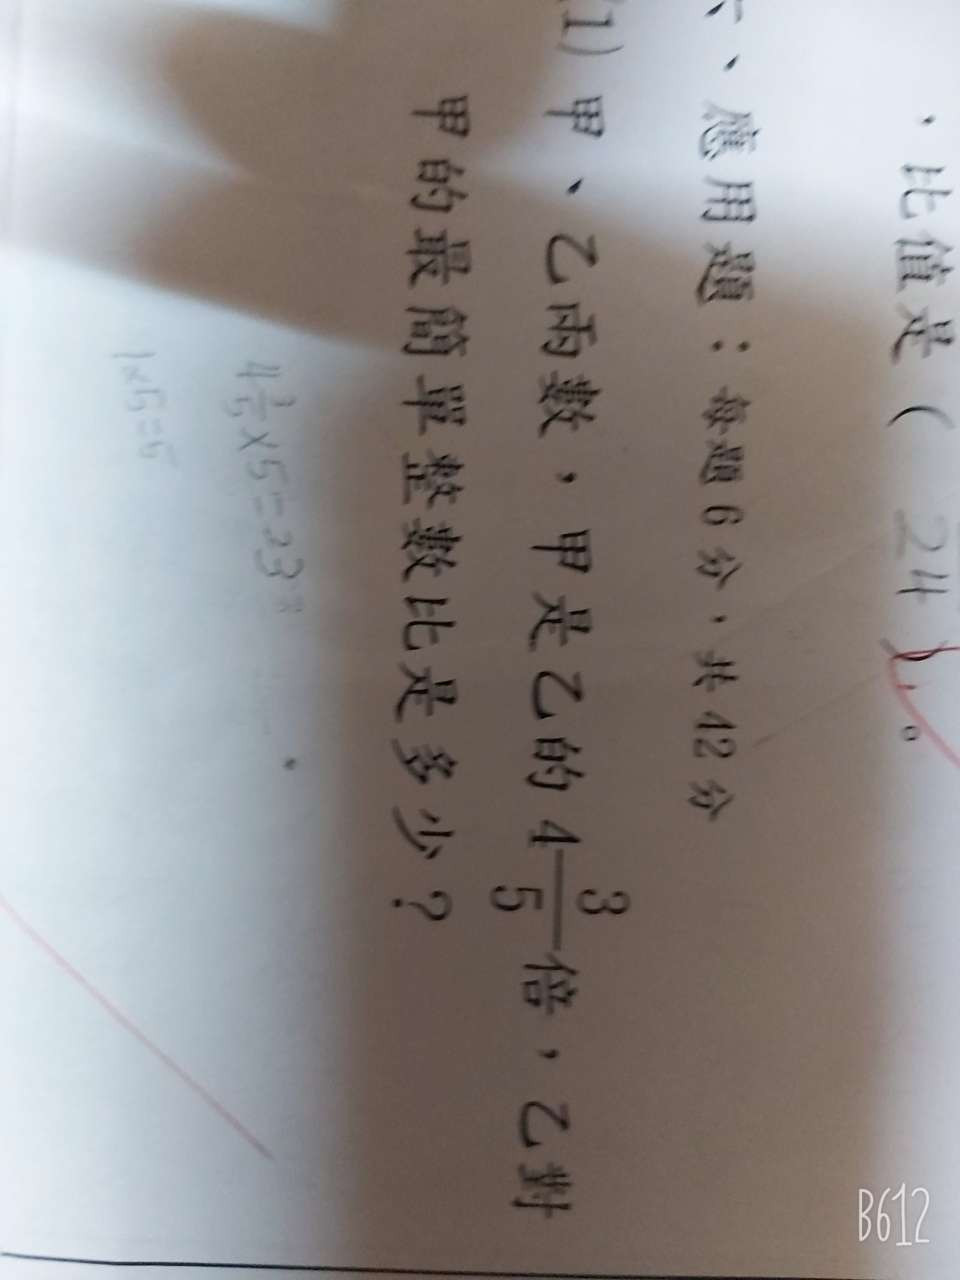 ，比值是（ 24 ）。
、應用題：每題6分，共42分
(1) 甲、乙兩數，甲是乙的4 3/5倍，乙對
甲的最簡單整數比是多少？
4 3/5 × 5 = 23
1×5=5
B612